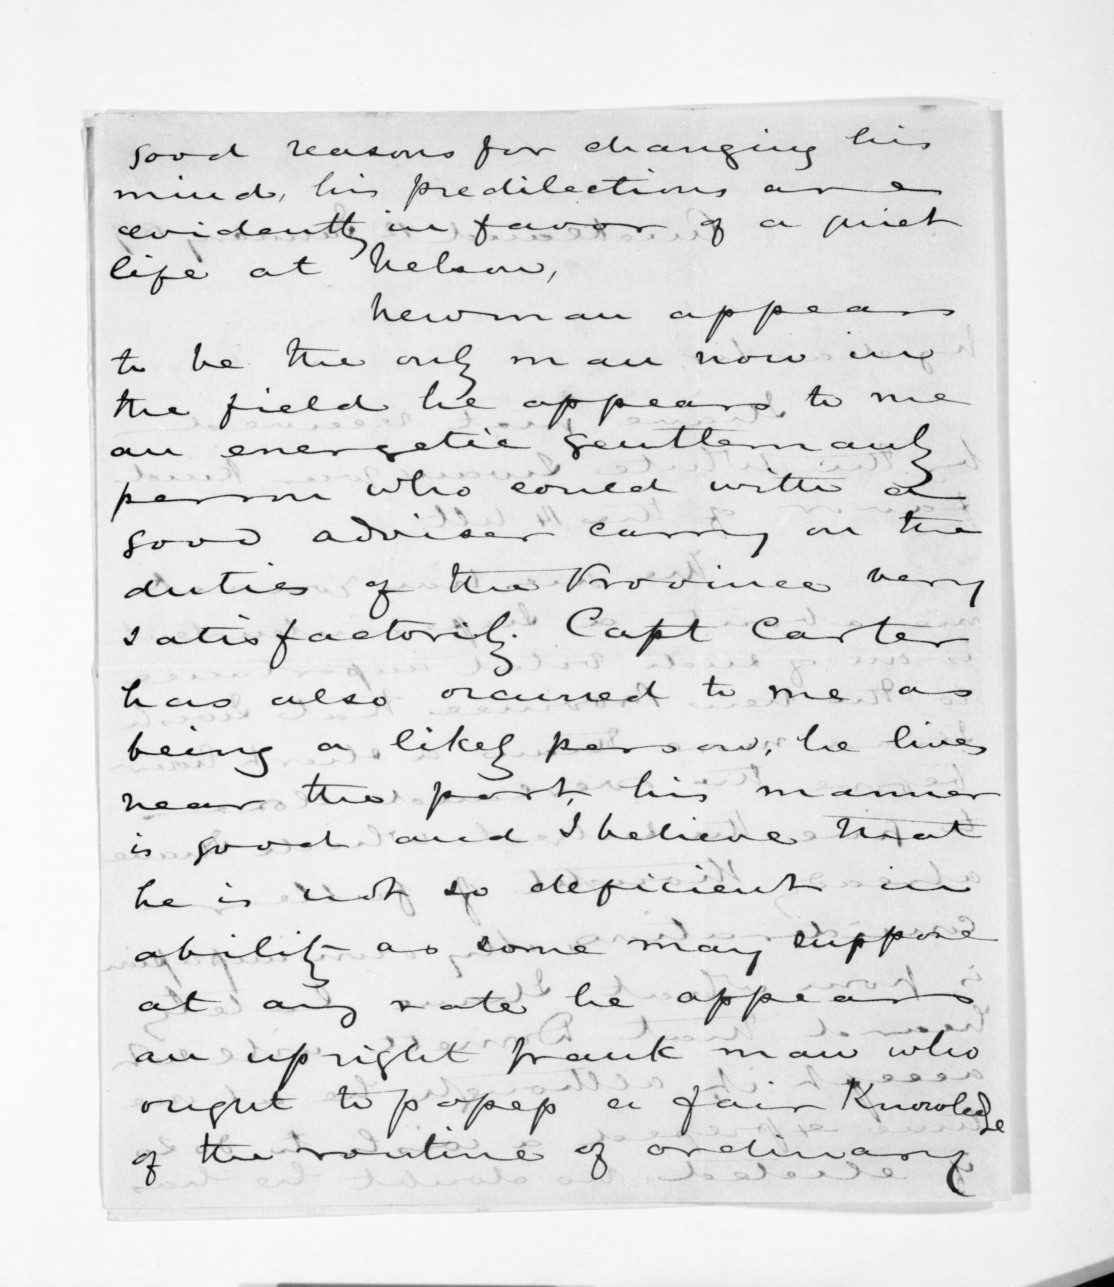 good reasons for changing his
mind, his predilections are
evidently in favor of a quiet
life at Nelson,
Newman appears
to be the only man now in
the field he appears to me
an energetic gentlemanly
person who could with a
good adviser carry on the
duties of the Province very
satisfactorily. Capt Carter
has also occurred to me as
being a likely person, he lives
near the port, his manner
is good and I believe that
he is not so deficient in
ability as some may suppose
at any rate he appears
an upright frank man who
ought to possess a fair Knowledge
of the routine of ordinary